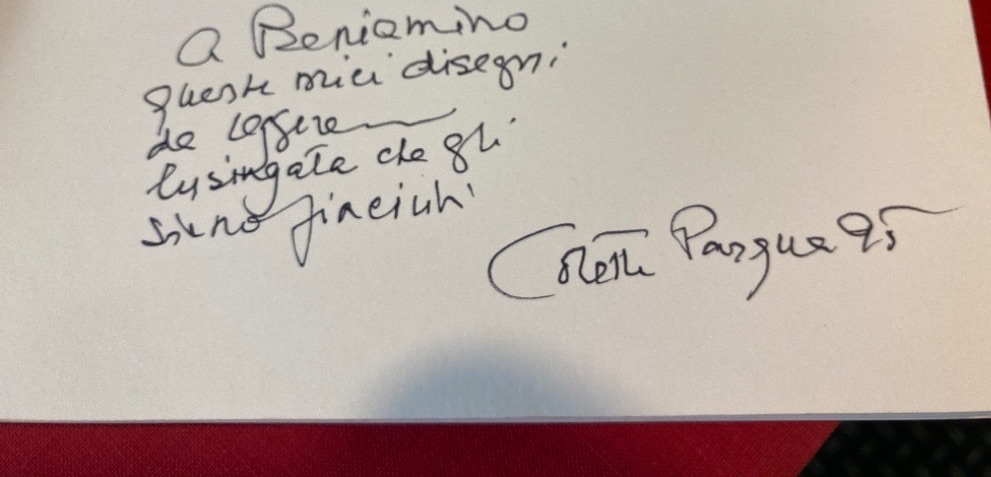 a Beniamino
questi miei disegni
da leggere
lusingata che gli
siano piaciuti
Colette Pasqua 95